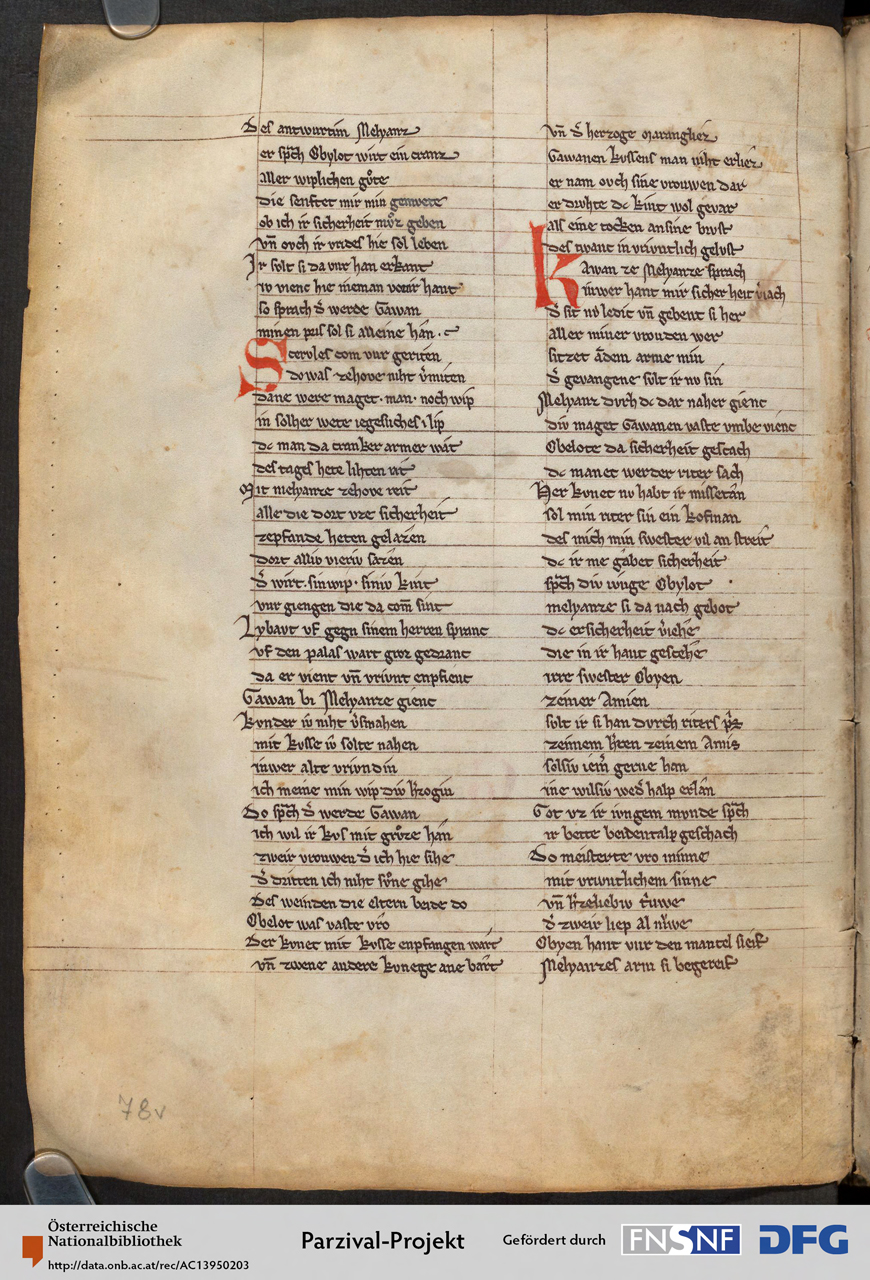 Des antwurtim Melyanz
er sp̄ch Obylot wirt ein cranz
aller wiplichen gůte
die senftet mir min gemvete
ob ich ir sicherheit mv̊z geben
vn̄ ovch ir vrides hie sol leben
Ir solt si da vur han erkant
iv vienc hie nieman vonir hant
so sprach d̓ werde Gawan
minen pris sol si alleine hân
Scerules com vur geriten
do was zehove niht v̓miten
dane were maget· man· noch wip
in solher wete iegesliches lip
dc man da cranker armer wât
des tages hete lihten rât
Mit melyanze zehove reit
alle die dort vze sicherheit
zepfande heten gelazen
dort alliv vieriv sazen
d̓ wirt· sin wip· siniv kint
vur giengen die da com̄ sint
Lybavt vf gegn sinem herren spranc
vf den palas wart groz gedranc
da er vient vn̄ vrivnt enpfienc
Gawan bi Melyanze gienc
kvnder iv̂ niht v̓smahen
mit kvsse iv̂ solte nahen
inwer alte vrivndin
ich meine min wip div h̓zogin
Do sp̄ch d̓ werde Gawan
ich wil ir kvs mit grv̊ze hân
zweir vrouwen d̓ ich hie sihe
d̓ dritten ich niht sv̊ne gihe
Des weinden die eltern beide do
Obelot was vaste vro
Der kvnec mit kvsse enpfangen wart
vn̄ zwene andere kvnege ane bart
vn̄ d̓ herzoge marangliez
Gawanen kvssens man niht erliez
er nam ovch sine vrouwen dar
er dvhte dc kint wol gevar
als eine tocken an sine brvst
des twanc in vrivntlich gelvst
Kawan ze Melyanze sprach
iuwer hant mir sicher heit v̓iach
d̓ sit nv ledic vn̄ gebent si her
aller miner vrouden wer
sitzet âdem arme min
d̓ gevangene sult ir nv sin
Melyanz dvrh dc dar naher gienc
div maget Gawanen vaste vmbe vienc
Obelote da sicherheit gescach
dc manec werder riter sach
Her kvnec nv habt ir missetan
sol min riter sin ein kofman
des mich min swester vil an streit
dc ir me gabet sicherheit
sp̄ch div ivnge Obylot
melyanze si da nach gebot
dc er sicherheit v̓iehe
die in ir hant geschehe
irre swester Obyen
zeiner Amien
solt ir si han dvrch riters p̂s
zeinem h̓ren zeinem Amis
sol si v iem̄ gerne han
ine wil siv wed̓ halp erlân
Got vz ir ivngem mvnde sp̄ch
ir bette beidentalp geschach
Do meisterte vro minne
mit vrivntlichem sinne
vn̄ h̓zeliebiv triuwe
d̓ zweir liep al niuwe
Obyen hant vur den mantel sleif
Melyanzes arm si begereif
78v
Österreichische
Nationalbibliothek
http://data.onb.ac.at/rec/AC13950203
Parzival-Projekt
Gefördert durch
FNSNF
DFG